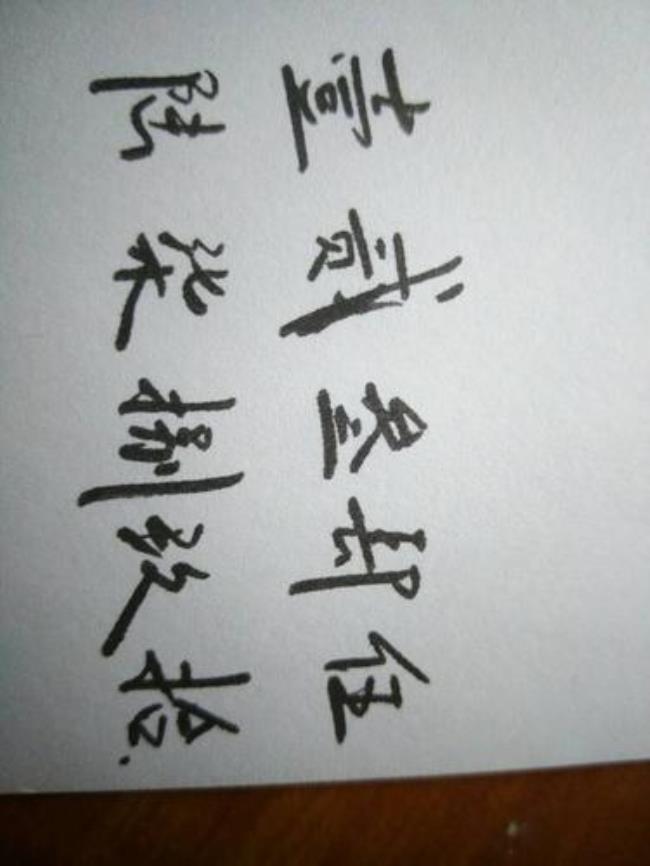 壹贰叁肆伍
陆柒捌玖拾.